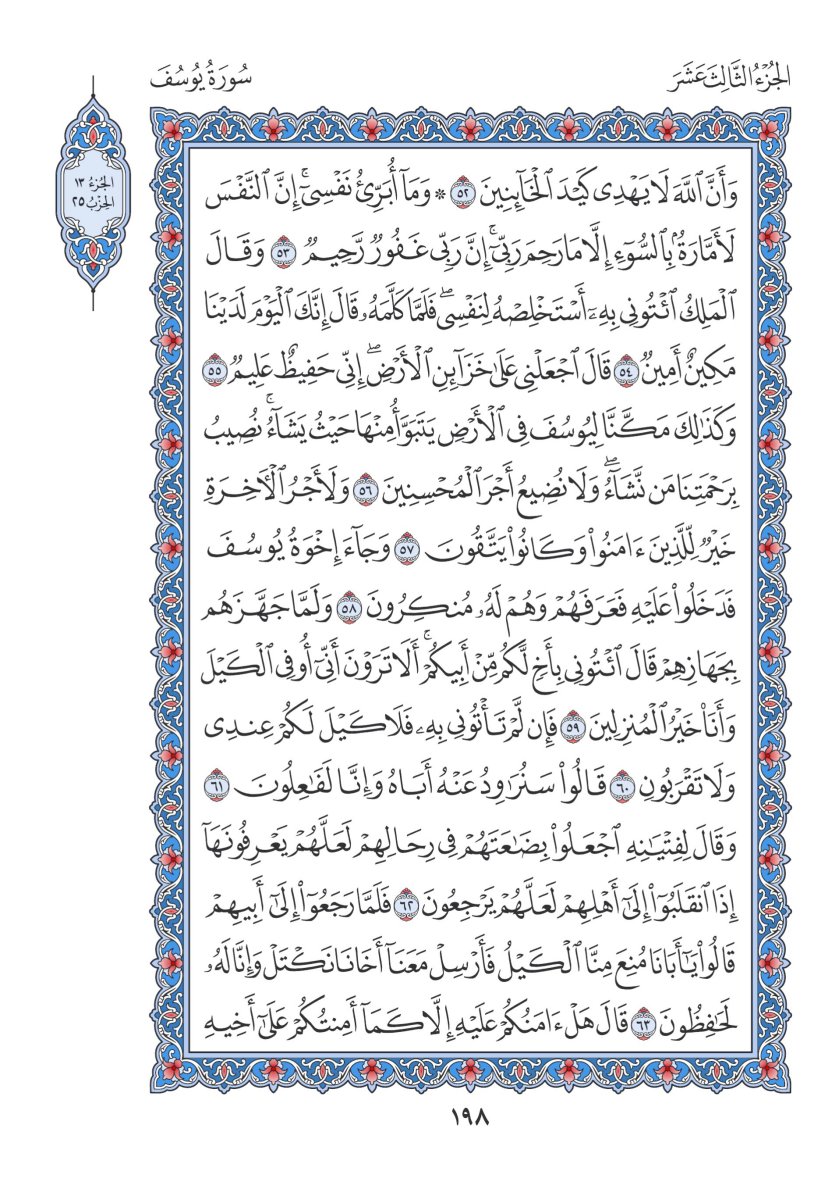 الجُزْءُ الثَّالِثَ عَشَرَ
سُورَةُ يُوسُفَ
الجُزءُ ١٣
الحِزْبُ ٢٥
وَأَنَّ ٱللَّهَ لَا يَهْدِى كَيْدَ ٱلْخَآئِنِينَ ٥٢ ۞ وَمَآ أُبَرِّئُ نَفْسِىٓ ۚ إِنَّ ٱلنَّفْسَ
لَأَمَّارَةُۢ بِٱلسُّوٓءِ إِلَّا مَا رَحِمَ رَبِّىٓ ۚ إِنَّ رَبِّى غَفُورٌ رَّحِيمٌ ٥٣ وَقَالَ
ٱلْمَلِكُ ٱئْتُونِى بِهِۦٓ أَسْتَخْلِصْهُ لِنَفْسِى ۖ فَلَمَّا كَلَّمَهُۥ قَالَ إِنَّكَ ٱلْيَوْمَ لَدَيْنَا
مَكِينٌ أَمِينٌ ٥٤ قَالَ ٱجْعَلْنِى عَلَىٰ خَزَآئِنِ ٱلْأَرْضِ ۖ إِنِّى حَفِيظٌ عَلِيمٌ ٥٥
وَكَذَٰلِكَ مَكَّنَّا لِيُوسُفَ فِى ٱلْأَرْضِ يَتَبَوَّأُ مِنْهَا حَيْثُ يَشَآءُ ۚ نُصِيبُ
بِرَحْمَتِنَا مَن نَّشَآءُ ۖ وَلَا نُضِيعُ أَجْرَ ٱلْمُحْسِنِينَ ٥٦ وَلَأَجْرُ ٱلْآخِرَةِ
خَيْرٌ لِّلَّذِينَ ءَامَنُوا۟ وَكَانُوا۟ يَتَّقُونَ ٥٧ وَجَآءَ إِخْوَةُ يُوسُفَ
فَدَخَلُوا۟ عَلَيْهِ فَعَرَفَهُمْ وَهُمْ لَهُۥ مُنكِرُونَ ٥٨ وَلَمَّا جَهَّزَهُم
بِجَهَازِهِمْ قَالَ ٱئْتُونِى بِأَخٍ لَّكُم مِّنْ أَبِيكُمْ ۚ أَلَا تَرَوْنَ أَنِّىٓ أُوفِى ٱلْكَيْلَ
وَأَنَا۠ خَيْرُ ٱلْمُنزِلِينَ ٥٩ فَإِن لَّمْ تَأْتُونِى بِهِۦ فَلَا كَيْلَ لَكُمْ عِندِى
وَلَا تَقْرَبُونِ ٦٠ قَالُوا۟ سَنُرَٰوِدُ عَنْهُ أَبَاهُ وَإِنَّا لَفَٰعِلُونَ ٦١
وَقَالَ لِفِتْيَٰنِهِ ٱجْعَلُوا۟ بِضَٰعَتَهُمْ فِى رِحَالِهِمْ لَعَلَّهُمْ يَعْرِفُونَهَآ
إِذَا ٱنقَلَبُوٓا۟ إِلَىٰٓ أَهْلِهِمْ لَعَلَّهُمْ يَرْجِعُونَ ٦٢ فَلَمَّا رَجَعُوٓا۟ إِلَىٰٓ أَبِيهِمْ
قَالُوا۟ يَٰٓأَبَانَا مُنِعَ مِنَّا ٱلْكَيْلُ فَأَرْسِلْ مَعَنَآ أَخَانَا نَكْتَلْ وَإِنَّا لَهُۥ
لَحَٰفِظُونَ ٦٣ قَالَ هَلْ ءَامَنُكُمْ عَلَيْهِ إِلَّا كَمَآ أَمِنتُكُمْ عَلَىٰٓ أَخِيهِ
١٩٨